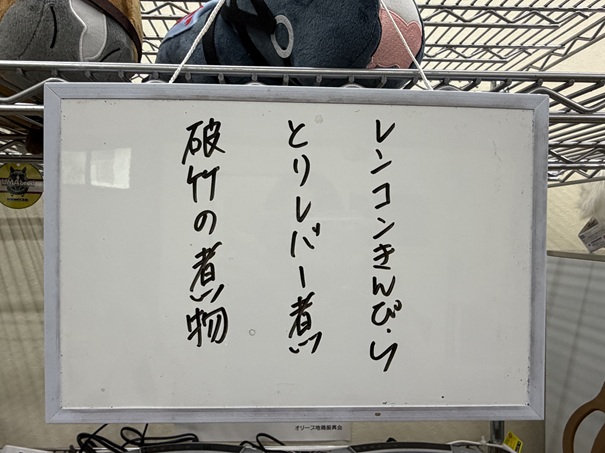 レンコンきんぴら
とりレバー煮
破竹の煮物
オリーブ地職振興会